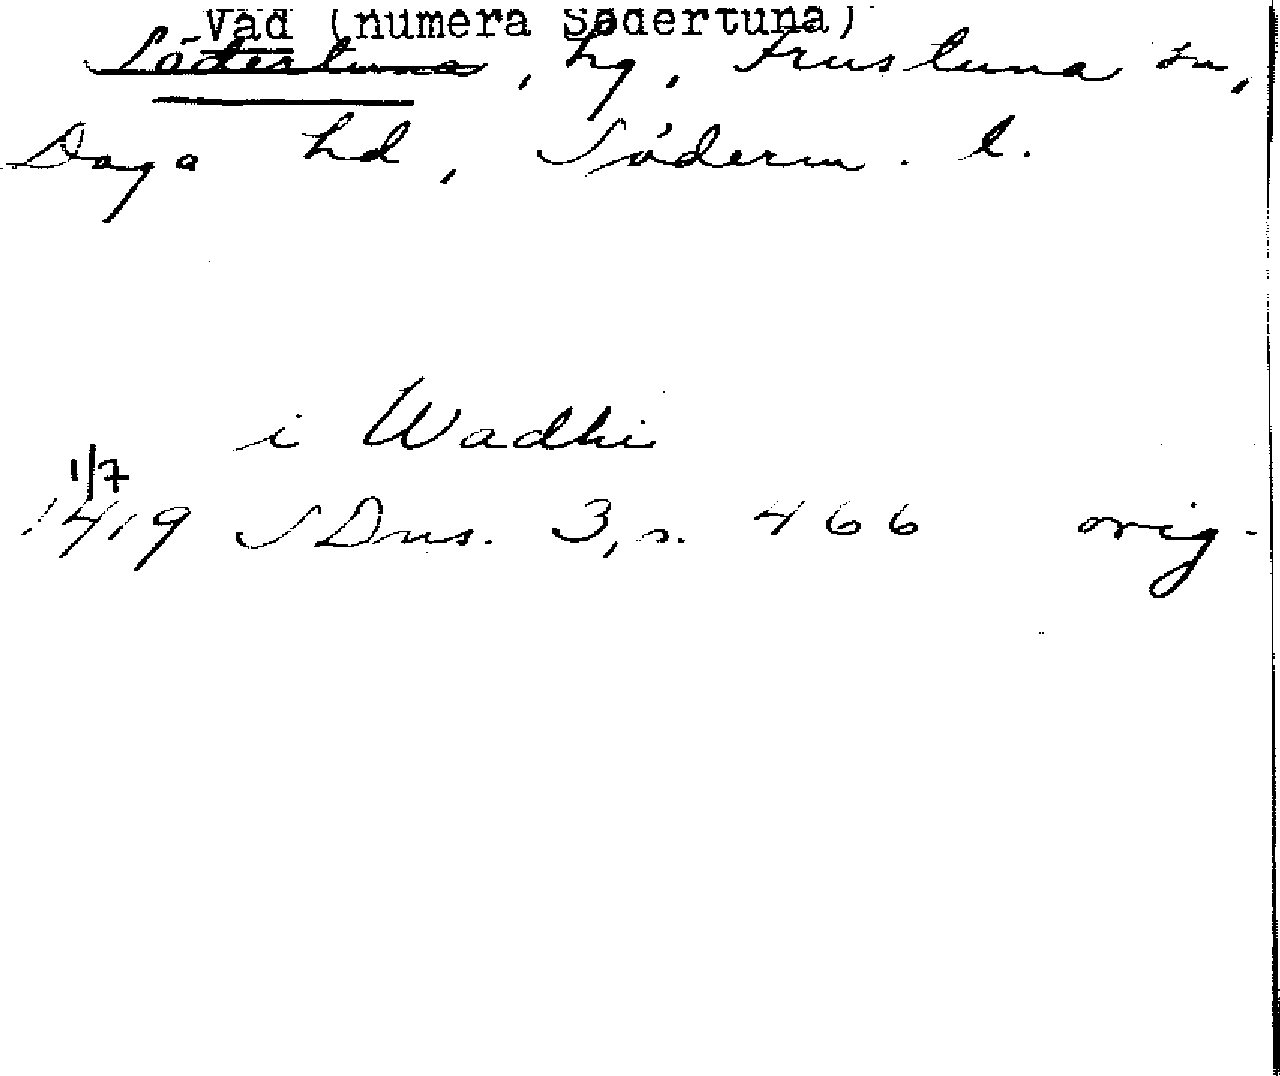 Vad (numera Södertuna)
Södertuna, hg, Frustuna sn,
Daga hd, Söderm. l.
i Wadhi
1/7
1419 SDns. 3, s. 466 orig.